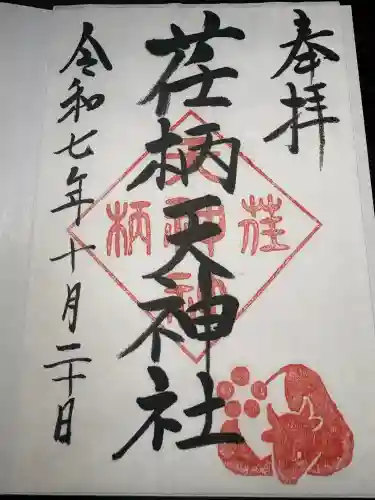 奉拝
荏柄天神社
令和七年十月二十日
荏柄天神社